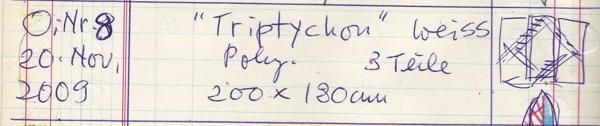 O. Nr. 8 "Triptychon" weiss
20. Nov. Poly. 3 Teile
2009 200 x 180 cm